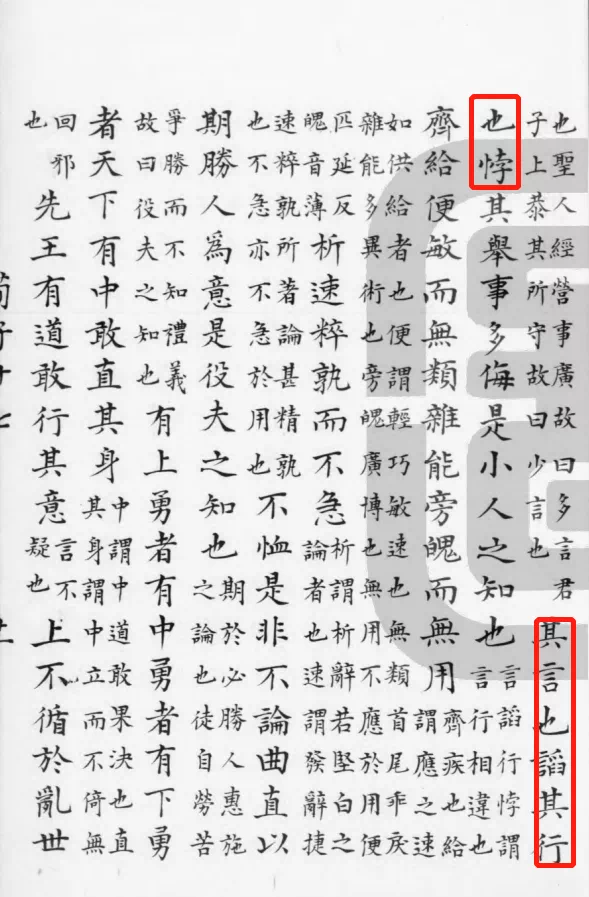 也聖人經營事廣故曰多言君子上恭其所守故曰少言也其言也謟其行
也悖其舉事多侮是小人之知也言謟行悖謂言行相違也
齊給便敏而無類雜能旁魄而無用齊疾也給謂應之速
如供給者也便謂輕巧敏速也無類首尾乖戾雜能多異術也旁魄廣博也無用不應於用便
匹延反魄音薄析速粹孰而不急析謂析辭若堅白之論者也速謂發辭捷
速粹孰所著論甚精孰也不急亦不急於用也不恤是非不論曲直以
期勝人爲意是役夫之知也期於必勝人惠施之論也徒自勞苦
爭勝而不知禮義故曰役夫之知也有上勇者有中勇者有下勇
者天下有中敢直其身中謂中道敢果決也直其身謂中立而不倚無
回邪也先王有道敢行其意言不疑也上不循於亂世